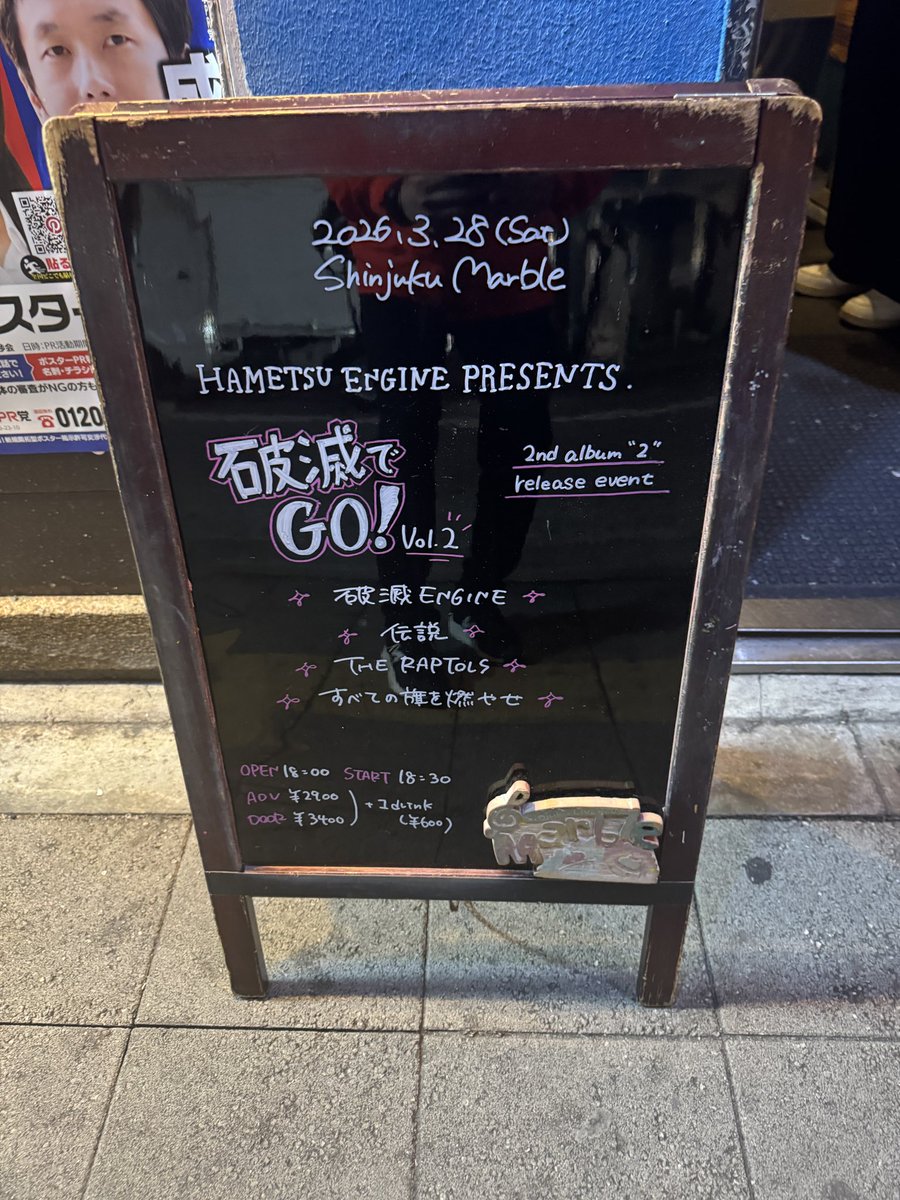 2026.3.28 (Sat)
Shinjuku Marble
HAMETSU ENGINE PRESENTS.
破滅で
GO! Vol.2
2nd album "2"
release event
破滅ENGINE
伝説
THE RAPTOLS
すべての旗を燃やせ
OPEN 18:00 START 18:30
ADV ¥2900
DOOR ¥3400
+1drink
(¥600)
Marble
貼る
スター
日時:PR活動期間
ポスターPR
名刺・チラシ
さい!
体の審査がNGの方も
PR党
0120